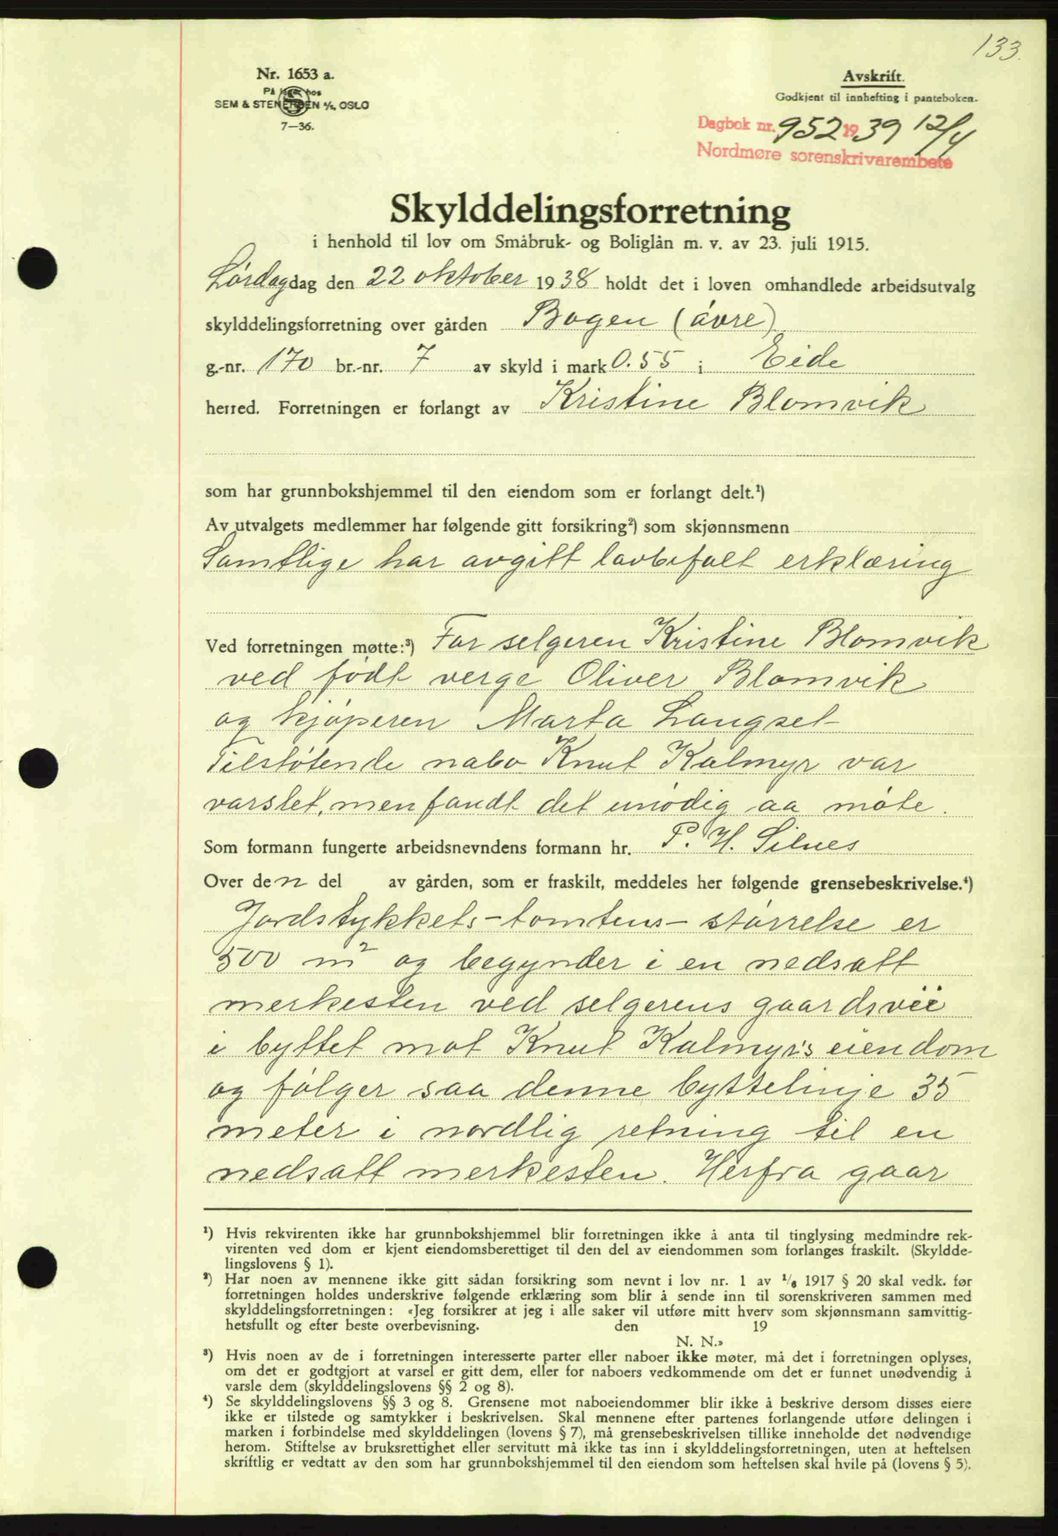 133.
Nr. 1653 a.
På lager hos
SEM & STENERSEN A/S, OSLO
7—36.
Avskrift.
Godkjent til innhefting i panteboken.
Dagbok nr. 952 1939 12/4
Nordmøre sorenskrivarembete
Skylddelingsforretning
i henhold til lov om Småbruk- og Boliglån m. v. av 23. juli 1915.
Lørdag dag den 22 oktober 1938 holdt det i loven omhandlede arbeidsutvalg
skylddelingsforretning over gården Bogen (øvre)
g.-nr. 170 br.-nr. 7 av skyld i mark 0.55 i Eide
herred. Forretningen er forlangt av Kristine Blomvik
som har grunnbokshjemmel til den eiendom som er forlangt delt.¹)
Av utvalgets medlemmer har følgende gitt forsikring²) som skjønnsmenn
Samtlige har avgitt lovbefalt erklæring
Ved forretningen møtte:³) For selgeren Kristine Blomvik
ved født verge Oliver Blomvik
og kjøperen Marta Langset
Tilstøtende nabo Knut Kalmyr var
varslet, men fandt det unødig aa møte.
Som formann fungerte arbeidsnevndens formann hr. P. H. Silnes
Over den del av gården, som er fraskilt, meddeles her følgende grensebeskrivelse.⁴)
Jordstykkets – tomtens – størrelse er
500 m² og begynder i en nedsatt
merkesten ved selgerens gaardsvei
i byttet mot Knut Kalmyr's eiendom
og følger saa denne byttelinje 35
meter i nordlig retning til en
nedsatt merkesten. Herfra gaar
¹) Hvis rekvirenten ikke har grunnbokshjemmel blir forretningen ikke å anta til tinglysing medmindre rek-
virenten ved dom er kjent eiendomsberettiget til den del av eiendommen som forlanges fraskilt. (Skyldde-
lingslovens § 1).
²) Har noen av mennene ikke gitt sådan forsikring som nevnt i lov nr. 1 av 1/6 1917 § 20 skal vedk. før
forretningen holdes underskrive følgende erklæring som blir å sende inn til sorenskriveren sammen med
skylddelingsforretningen: «Jeg forsikrer at jeg i alle saker vil utføre mitt hverv som skjønnsmann samvittig-
hetsfullt og efter beste overbevisning. den 19
N. N.»
³) Hvis noen av de i forretningen interesserte parter eller naboer ikke møter, må det i forretningen oplyses,
om det er godtgjort at varsel er gitt dem, eller for naboers vedkommende om det er funnet unødvendig å
varsle dem (skylddelingslovens §§ 2 og 8).
⁴) Se skylddelingslovens §§ 3 og 8. Grensene mot naboeiendommer blir ikke å beskrive dersom disses eiere
ikke er tilstede og samtykker i beskrivelsen. Skal mennene efter partenes forlangende utføre delingen i
marken i forbindelse med skylddelingen (lovens § 7), må grensebeskrivelsen tillike inneholde det nødvendige
herom. Stiftelse av bruksrettighet eller servitutt må ikke tas inn i skylddelingsforretningen, uten at heftelsen
skriftlig er vedtatt av den som har grunnbokshjemmel til den eiendom som heftelsen skal hvile på (lovens § 5).